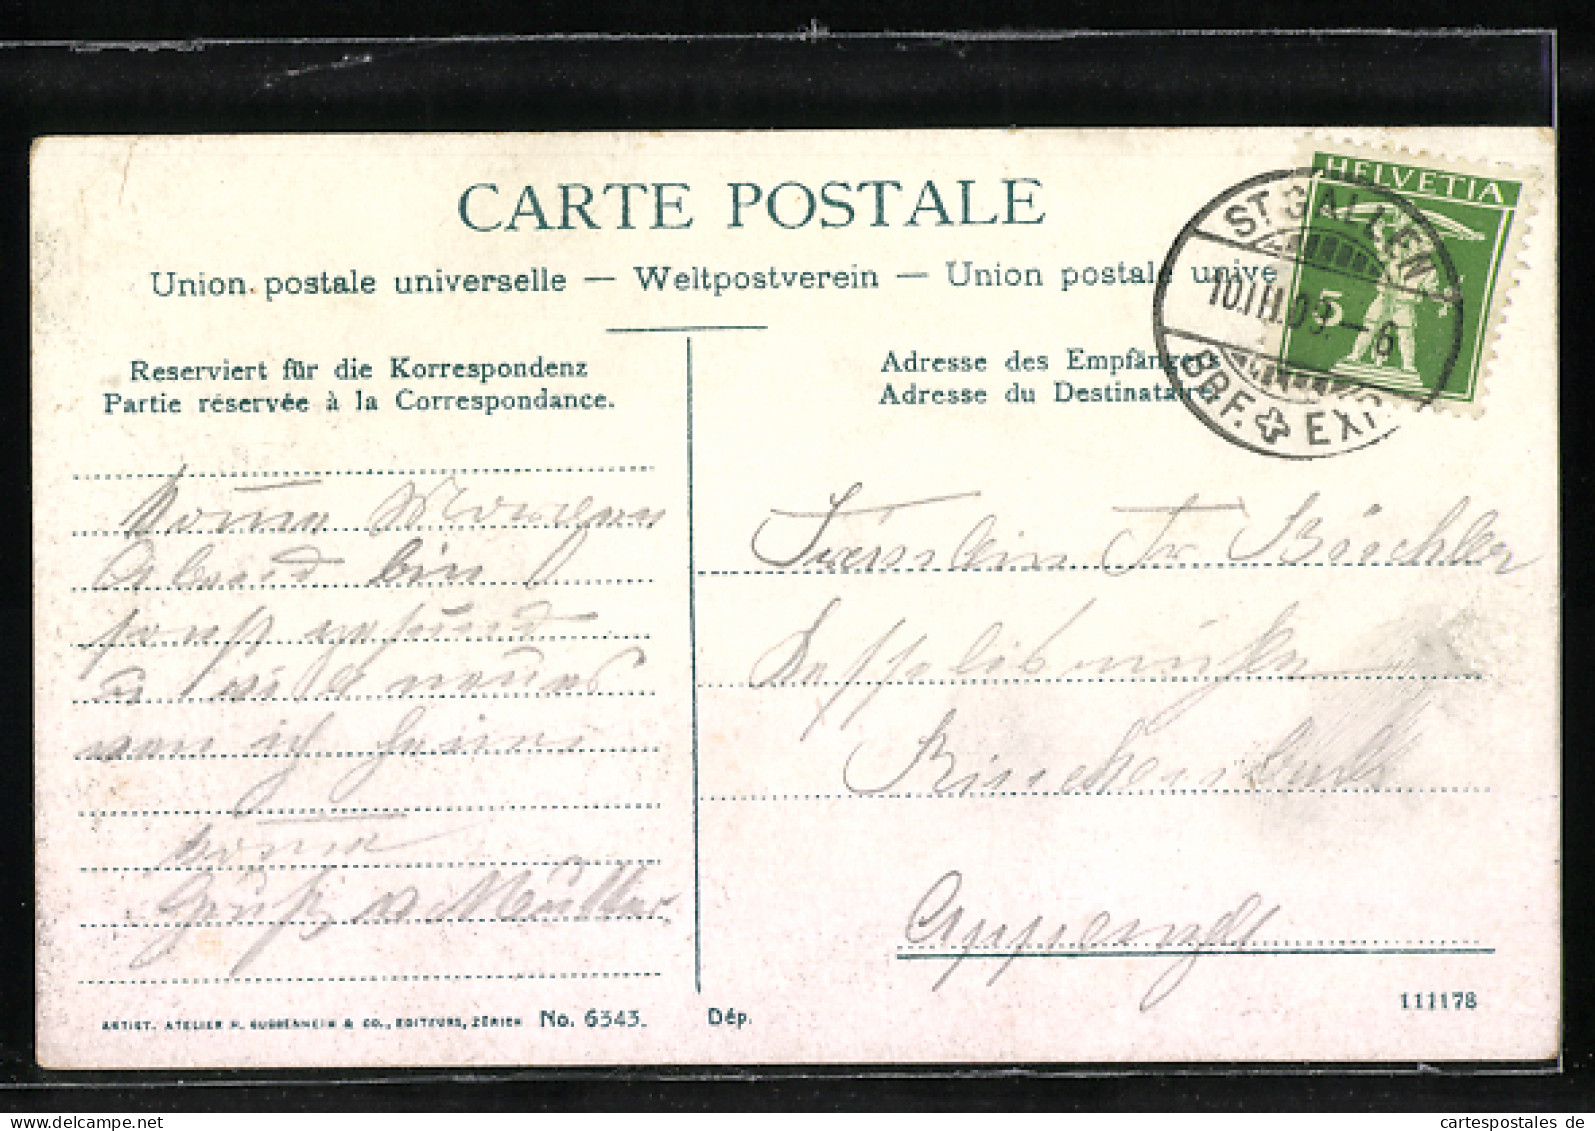 CARTE POSTALE
Union postale universelle — Weltpostverein — Union postale unive
Reserviert für die Korrespondenz
Partie réservée à la Correspondance.
Adresse des Empfänger
Adresse du Destinataire
HELVETIA
5
ST. GALLEN
10.III.09.–6
BRF. EXP.
komme Morgen
Abend bin
sonst gesund
u weiß neues
von ich keine
komme
Gruß v Müller
Fräulein Fr. Büchler
Appenzell
ARTIST. ATELIER H. GUGGENHEIM & CO., EDITEURS, ZÜRICH No. 6343.
Dép.
111178
cartespostales de